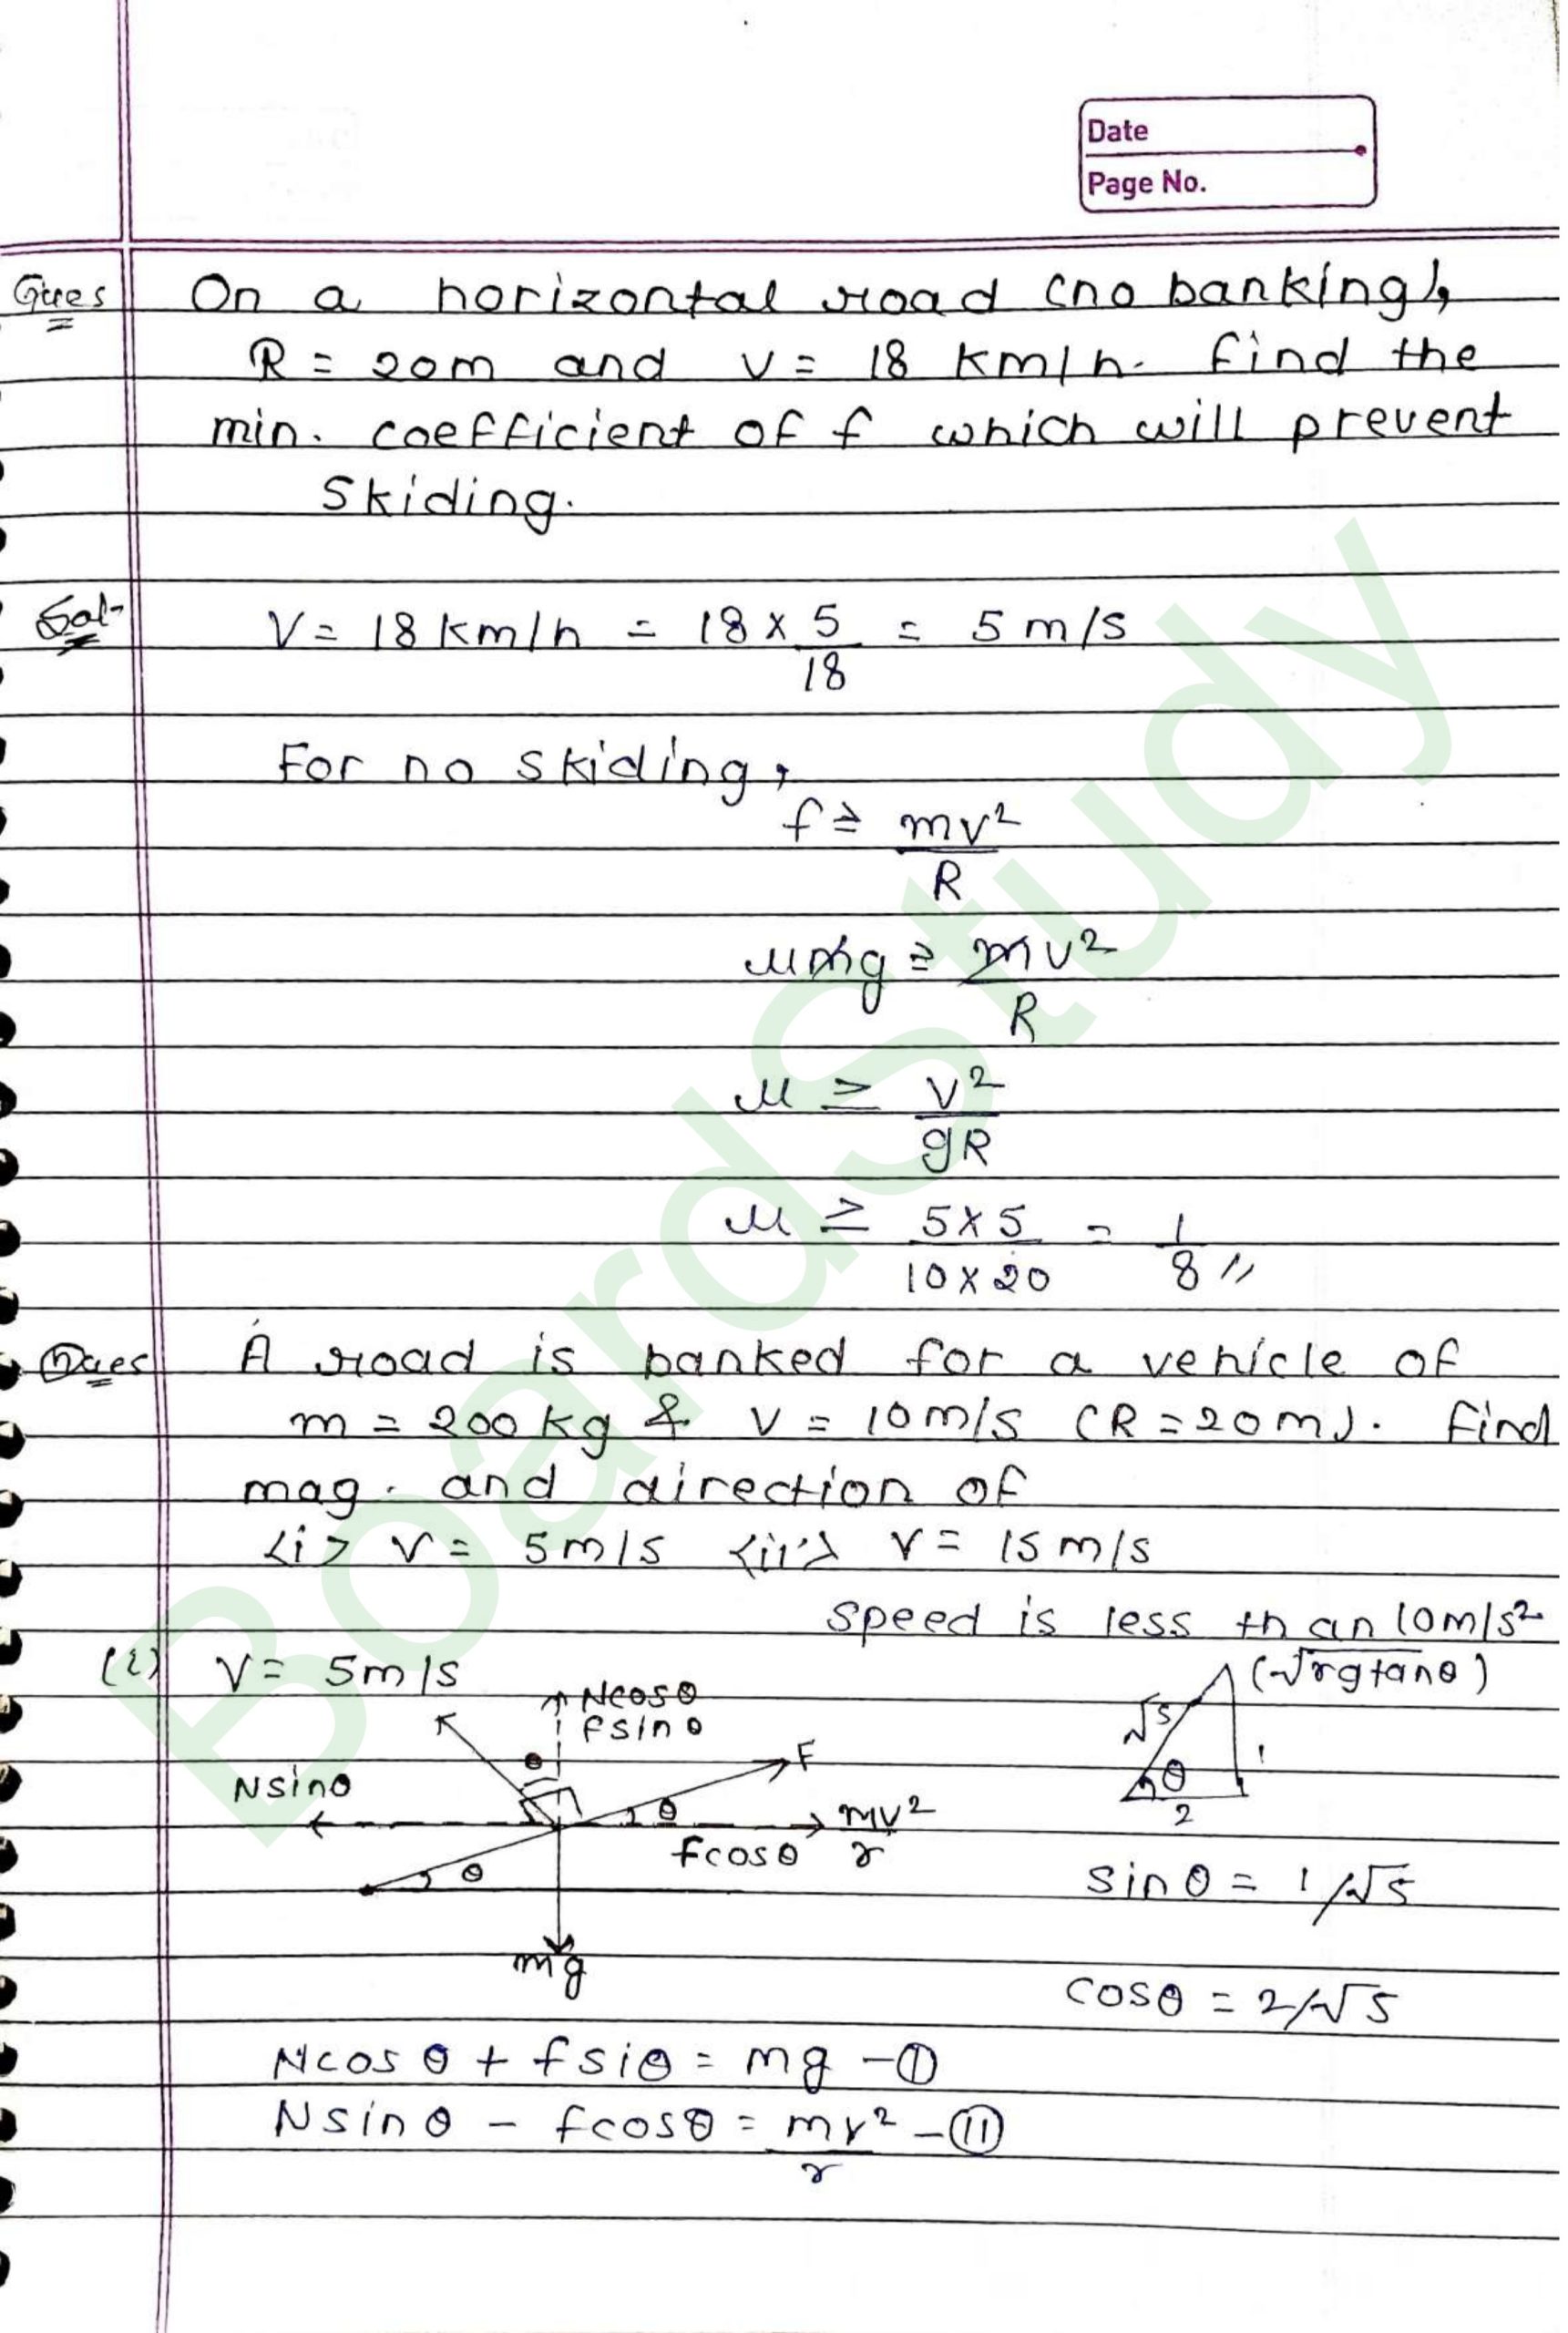 Date
Page No.
Ques On a horizontal road (no banking),
R = 20m and v = 18 km/h. find the
min. coefficient of f which will prevent
skiding.
Sol- V = 18 km/h = 18 × 5/18 = 5 m/s
For no skiding,
f ≥ mv²/R
μmg ≥ mv²/R
μ ≥ v²/gR
μ ≥ 5×5/10×20 = 1/8 //
Ques A road is banked for a vehicle of
m = 200 kg & v = 10 m/s (R = 20m). find
mag. and direction of
<i> v = 5m/s <ii> v = 15 m/s
speed is less than 10m/s²
(√rgtanθ)
(i) V = 5m/s
Ncosθ
fsinθ
θ
F
Nsinθ
θ
mv²/r
fcosθ
θ
mg
√5
1
θ
2
sinθ = 1/√5
cosθ = 2/√5
Ncosθ + fsiθ = mg - ①
Nsinθ - fcosθ = mv²/r - ⑪
BoardStudy